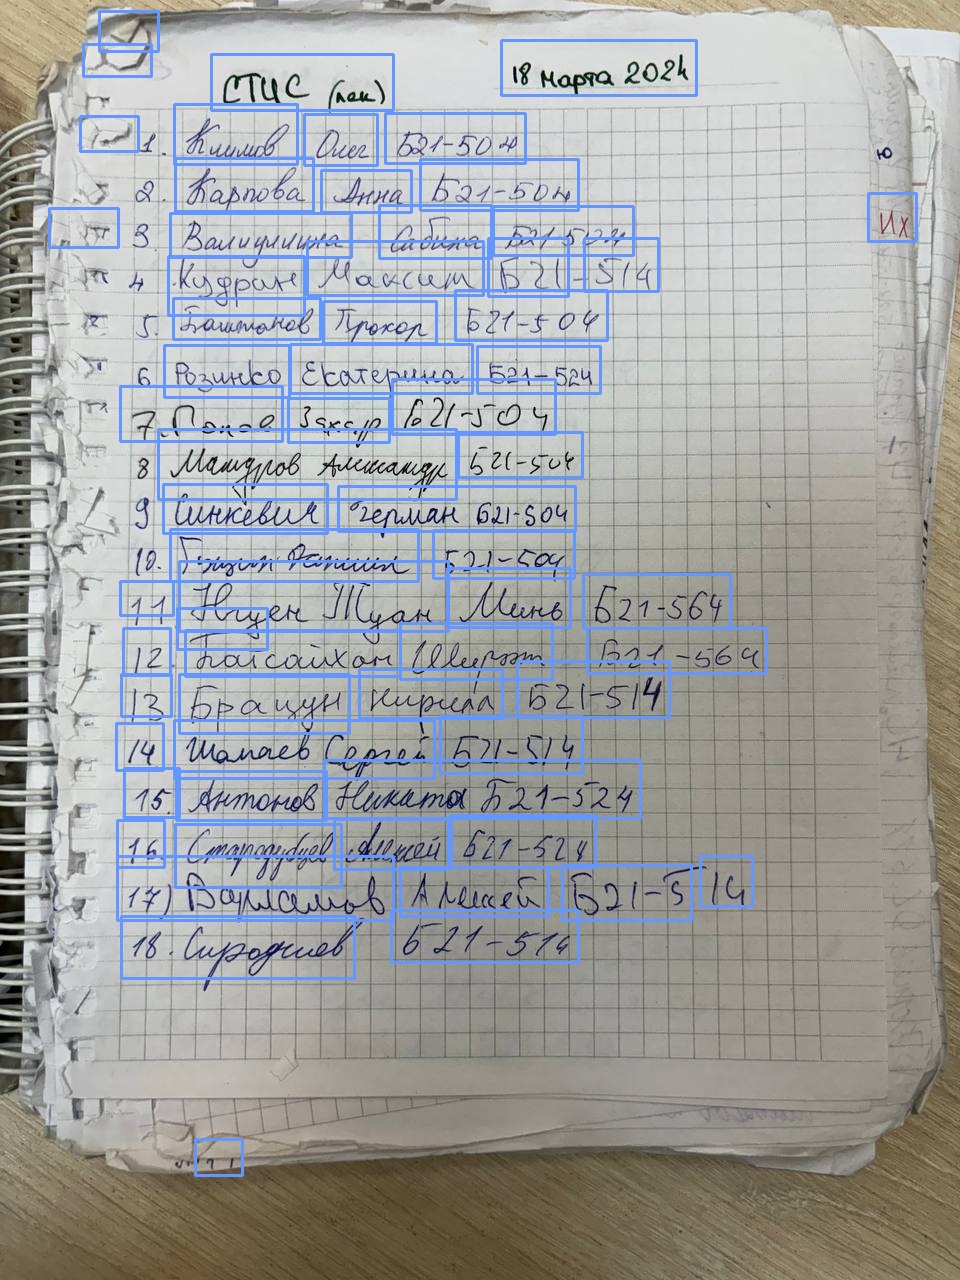 СТИС (лек) 18 марта 2024
1. Климов Олег Б21-504
2. Карпова Анна Б21-504
3. Валидулина Сабина Б21-504
4 Кудрин Максим Б21-514
5. Баштанов Прохор Б21-504
6 Розинко Екатерина Б21-524
7. Попов Захар Б21-504
8 Мажуров Александр Б21-504
9 Синкевич Герман Б21-504
10. Б21-504
11 Нгуен Туан Минь Б21-564
12. Батсайхан Б21-564
13 Брацун Кирилл Б21-514
14 Шамаев Сергей Б21-514
15. Антонов Никита Б21-524
16 Стародубцев Алексей Б21-524
17) Варламов Алексей Б21-514
18. Б21-514
ю
их